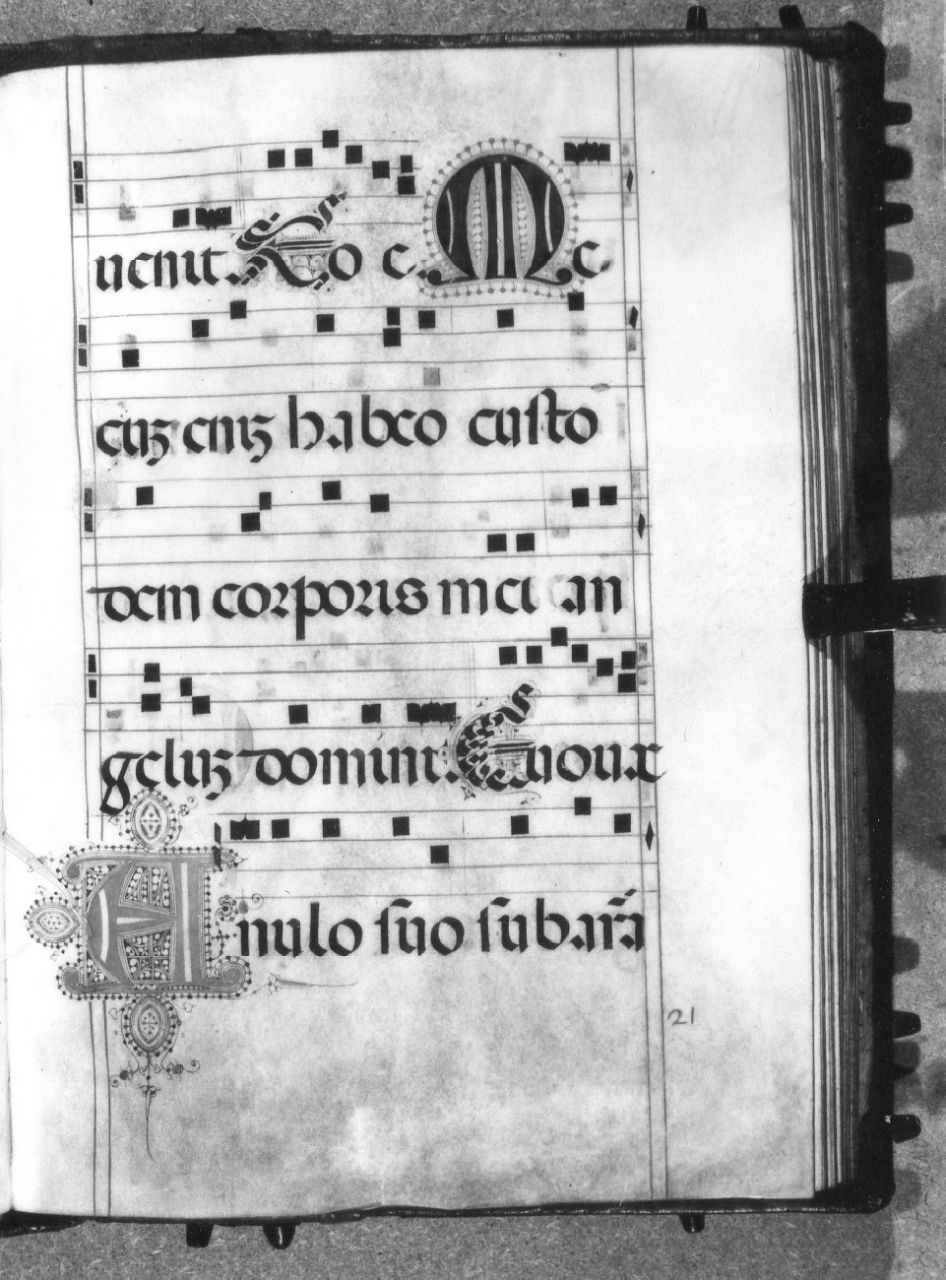 uenit. Eo e. Me
cuʒ eniʒ habeo custo
dem corporis mei an
geluʒ domini. Euouae
Anulo suo subar̃a
21